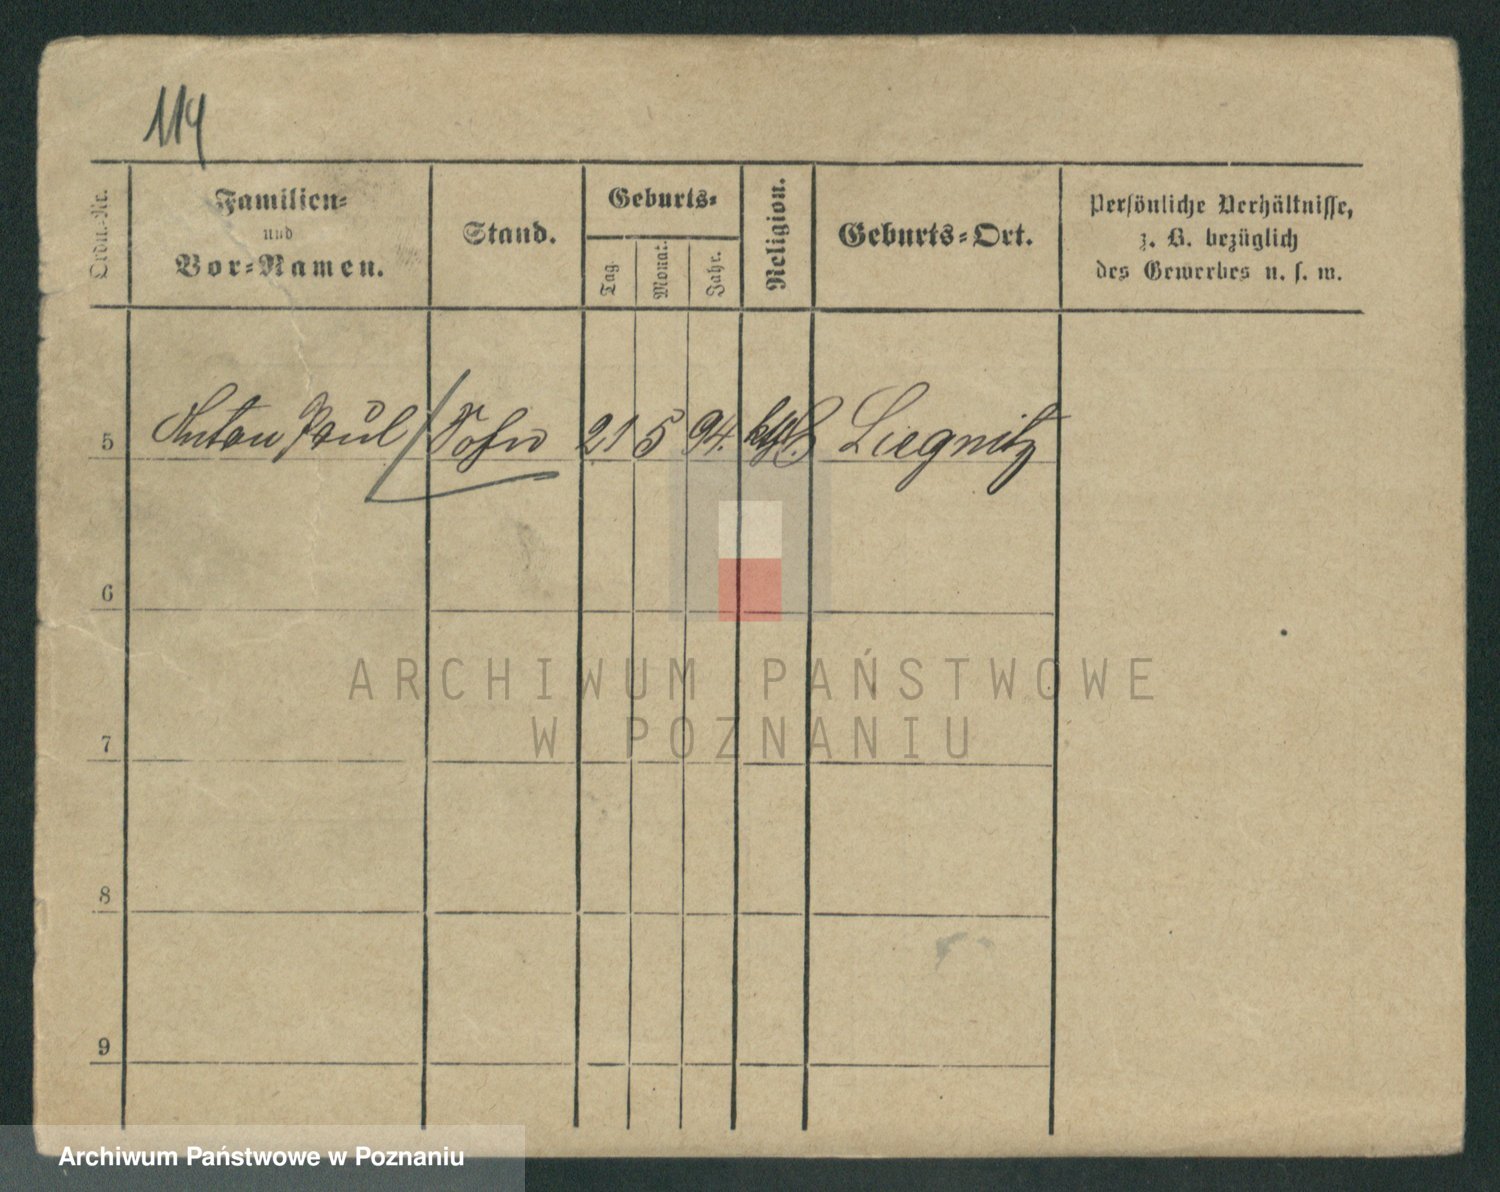 114
Ordn.-Nr.
Familien-
und
Vor-Namen.
Stand.
Geburts-
Tag.
Monat.
Jahr.
Religion.
Geburts-Ort.
Persönliche Verhältnisse,
z. B. bezüglich
des Gewerbes u. s. w.
5 Anton Paul Sohn 21 5 94. kath. Liegnitz
6
7
8
9
ARCHIWUM PAŃSTWOWE
W POZNANIU
Archiwum Państwowe w Poznaniu